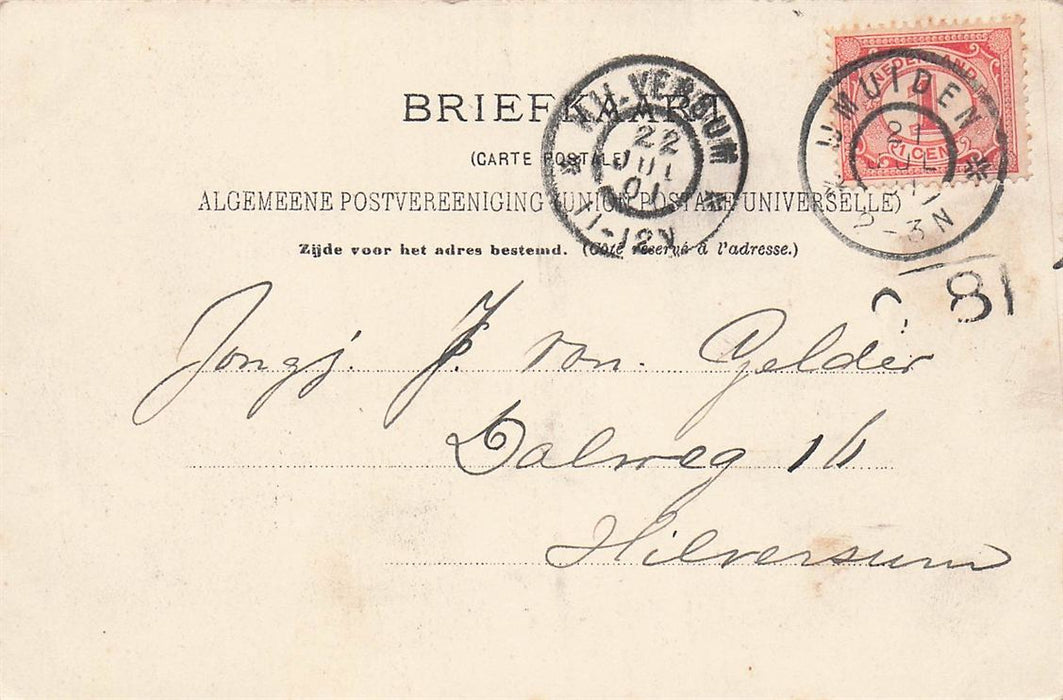 BRIEFKAART
(CARTE POSTALE)
ALGEMEENE POSTVEREENIGING (UNION POSTALE UNIVERSELLE)
Zijde voor het adres bestemd. (Côté réservé à l'adresse.)
HILVERSUM
22
JUL
01
11-12V
NEDERLAND
1
1 CENT
IJMUIDEN
21
JUL
01
2-3N
81
Jongj. J. von. Gelder
Dalweg 16
Hilversum